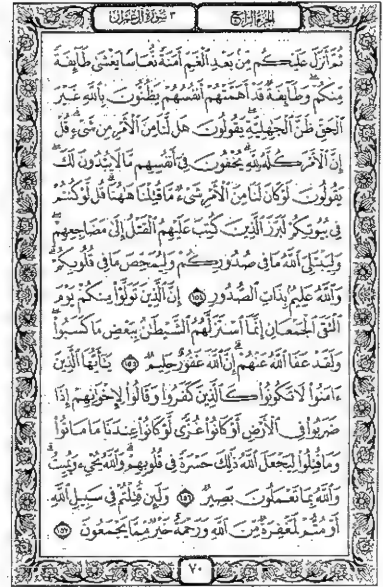 ٣ سورة آل عمران
الجزء الرابع
ثُمَّ أَنزَلَ عَلَيْكُم مِّنۢ بَعْدِ ٱلْغَمِّ أَمَنَةً نُّعَاسًا يَغْشَىٰ طَآئِفَةً
مِّنكُمْ ۖ وَطَآئِفَةٌ قَدْ أَهَمَّتْهُمْ أَنفُسُهُمْ يَظُنُّونَ بِٱللَّهِ غَيْرَ
ٱلْحَقِّ ظَنَّ ٱلْجَٰهِلِيَّةِ ۖ يَقُولُونَ هَل لَّنَا مِنَ ٱلْأَمْرِ مِن شَىْءٍ ۗ قُلْ
إِنَّ ٱلْأَمْرَ كُلَّهُۥ لِلَّهِ ۗ يُخْفُونَ فِىٓ أَنفُسِهِم مَّا لَا يُبْدُونَ لَكَ ۖ
يَقُولُونَ لَوْ كَانَ لَنَا مِنَ ٱلْأَمْرِ شَىْءٌ مَّا قُتِلْنَا هَٰهُنَا ۗ قُل لَّوْ كُنتُمْ
فِى بُيُوتِكُمْ لَبَرَزَ ٱلَّذِينَ كُتِبَ عَلَيْهِمُ ٱلْقَتْلُ إِلَىٰ مَضَاجِعِهِمْ ۖ
وَلِيَبْتَلِىَ ٱللَّهُ مَا فِى صُدُورِكُمْ وَلِيُمَحِّصَ مَا فِى قُلُوبِكُمْ ۗ
وَٱللَّهُ عَلِيمٌۢ بِذَاتِ ٱلصُّدُورِ ١٥٤ إِنَّ ٱلَّذِينَ تَوَلَّوْا۟ مِنكُمْ يَوْمَ
ٱلْتَقَى ٱلْجَمْعَانِ إِنَّمَا ٱسْتَزَلَّهُمُ ٱلشَّيْطَٰنُ بِبَعْضِ مَا كَسَبُوا۟ ۖ
وَلَقَدْ عَفَا ٱللَّهُ عَنْهُمْ ۗ إِنَّ ٱللَّهَ غَفُورٌ حَلِيمٌ ١٥٥ يَٰٓأَيُّهَا ٱلَّذِينَ
ءَامَنُوا۟ لَا تَكُونُوا۟ كَٱلَّذِينَ كَفَرُوا۟ وَقَالُوا۟ لِإِخْوَٰنِهِمْ إِذَا
ضَرَبُوا۟ فِى ٱلْأَرْضِ أَوْ كَانُوا۟ غُزًّى لَّوْ كَانُوا۟ عِندَنَا مَا مَاتُوا۟
وَمَا قُتِلُوا۟ لِيَجْعَلَ ٱللَّهُ ذَٰلِكَ حَسْرَةً فِى قُلُوبِهِمْ ۗ وَٱللَّهُ يُحْىِۦ وَيُمِيتُ ۗ
وَٱللَّهُ بِمَا تَعْمَلُونَ بَصِيرٌ ١٥٦ وَلَئِن قُتِلْتُمْ فِى سَبِيلِ ٱللَّهِ
أَوْ مُتُّمْ لَمَغْفِرَةٌ مِّنَ ٱللَّهِ وَرَحْمَةٌ خَيْرٌ مِّمَّا يَجْمَعُونَ ١٥٧
٧٠